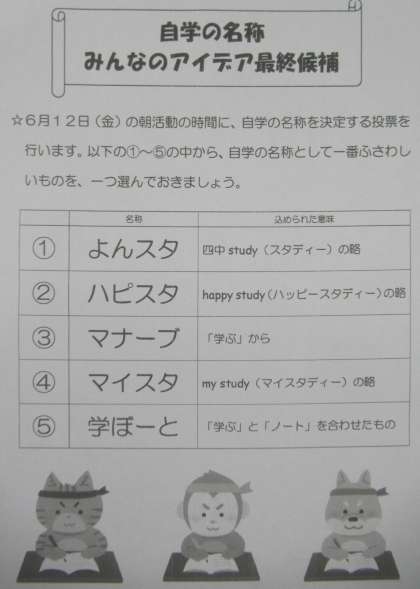 自学の名称
みんなのアイデア最終候補
☆６月１２日（金）の朝活動の時間に、自学の名称を決定する投票を
行います。以下の①～⑤の中から、自学の名称として一番ふさわし
いものを、一つ選んでおきましょう。
名称 込められた意味
① よんスタ 四中 study（スタディー）の略
② ハピスタ happy study（ハッピースタディー）の略
③ マナーブ 「学ぶ」から
④ マイスタ my study（マイスタディー）の略
⑤ 学ぼーと 「学ぶ」と「ノート」を合わせたもの